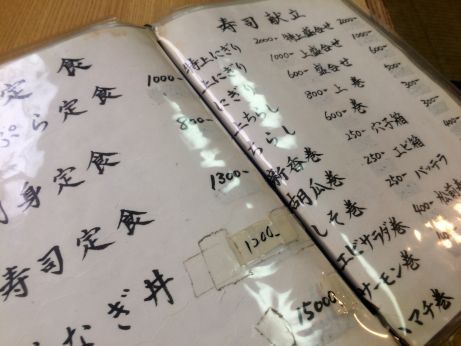 定食
1000-
ぷら定食
800-
身定食
1300-
寿司定食
1200-
なぎ丼
15000
寿司献立
特上にぎり 2000- 特上盛合せ 2000-
上にぎり 1000- 上盛合せ 1000-
にぎり 600- 盛合せ
上ちらし 800- 上巻
ちらし 600- 巻
新香巻 250- 穴子箱
胡瓜巻 250- エビ箱
しそ巻 250- バッテラ
エビサラダ巻 400-
サーモン巻
ハマチ巻